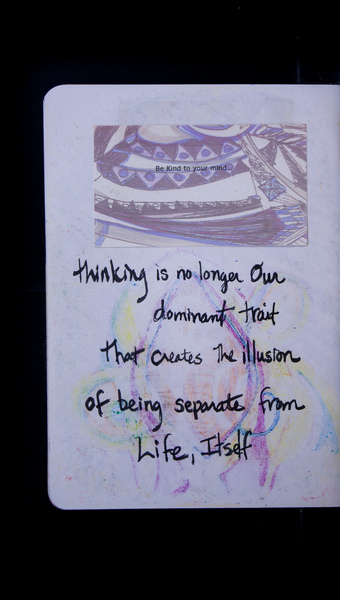 Be Kind to your mind...
thinking is no longer Our
dominant trait
that creates The illusion
of being separate from
Life, Itself